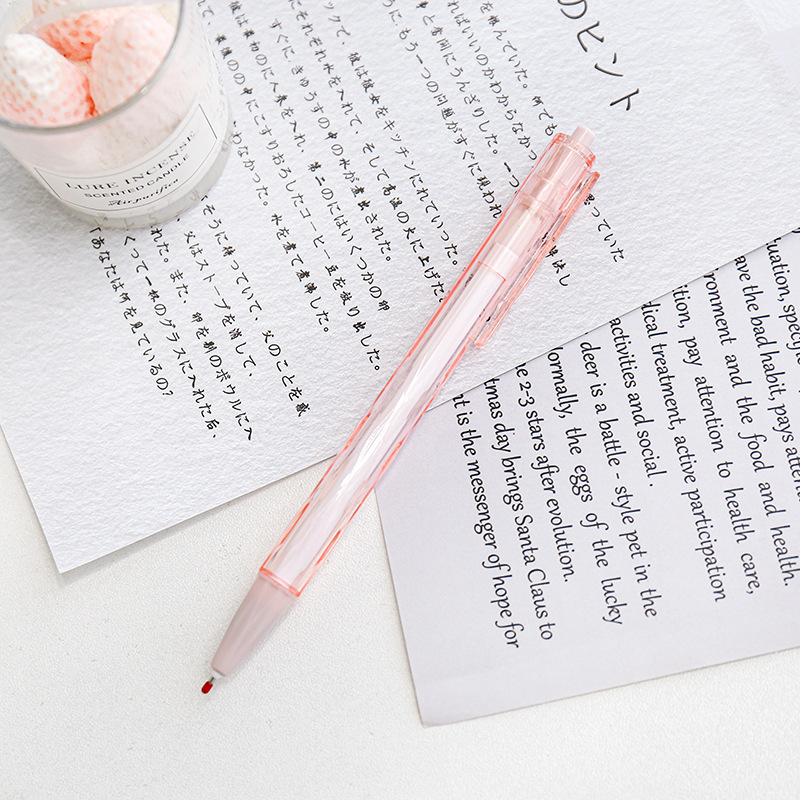 LURE INCENSE
SCENTED CANDLE
Air purifica
のヒント
を喰んでいた。何ても
ればいいのかわからなかっ
中と奮闘にうんざりした。一つ
うに、もう一つの問題がすぐに現われ
ックで、彼は彼女をキッチンにれていった。
にそれぞれ水を入れて、そして高温の火に上げた。
すぐに、きゅうすの中の水が煮出された。
彼は最初のに人参を入れ、第二のにはいくつかの卵
て、最後のの中にこすりおろしたコーヒー豆を放り出した。
わなかった。水を煮て煮沸した。
「そうに待っていて、父のことを感
父はストーブを消して、
た。また、卵を別のボウルに入
くって一杯のグラスに入れた后、
「あなたは何を見ているの?
黙っていた
解決し
uation, specific
ave the bad habit, pays atten
ronment and the food and health.
ition, pay attention to health care,
dical treatment, active participation
activities and social .
deer is a battle - style pet in the
ormally, the eggs of the lucky
e 2-3 stars after evolution.
tmas day brings Santa Claus to
t is the messenger of hope for